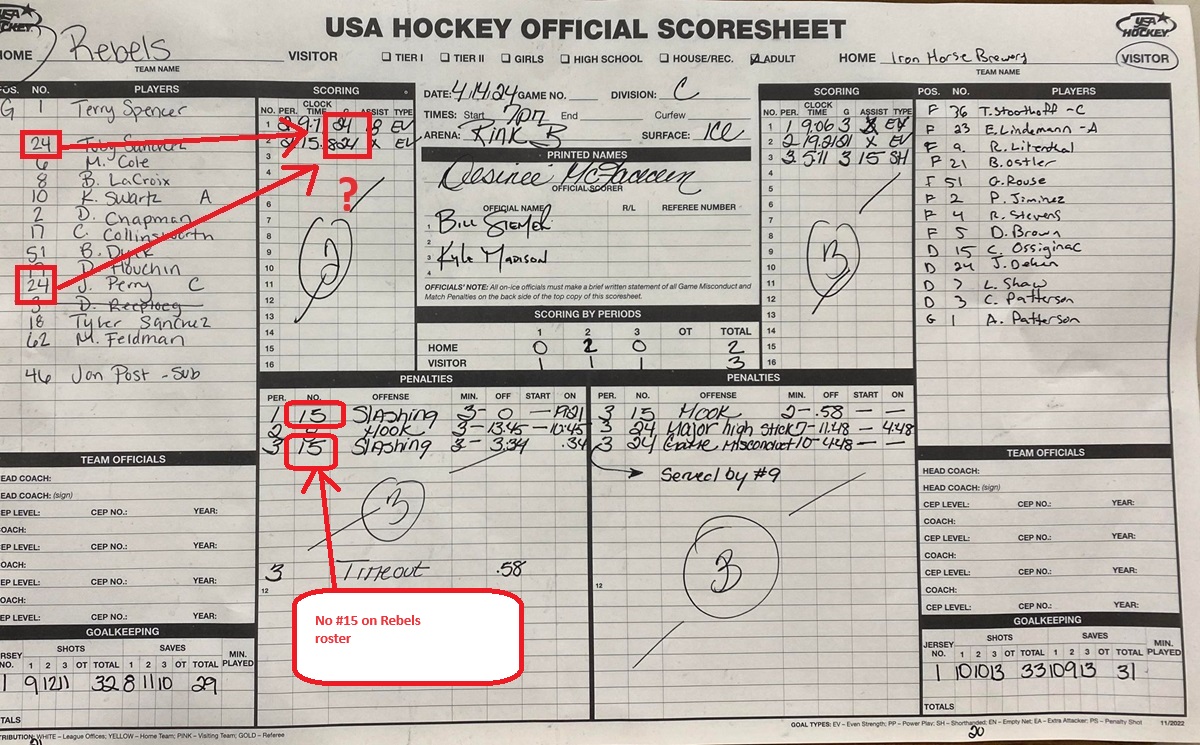 USA HOCKEY OFFICIAL SCORESHEET
USA HOCKEY.
USA HOCKEY.
HOME Rebels
TEAM NAME
VISITOR ☐ TIER I ☐ TIER II ☐ GIRLS ☐ HIGH SCHOOL ☐ HOUSE/REC. ☑ ADULT HOME
Iron Horse Brewery
TEAM NAME
VISITOR
POS. NO. PLAYERS
G 1 Terry Spencer
24 Toby Sanchez
6 M. Cole
8 B. LaCroix
10 K. Swartz A
2 D. Chapman
17 C. Collinsworth
51 B. Dyck
D. Houchin
24 J. Perry C
3
18 Tyler Sanchez
62 M. Feldman
46 Jon Post - Sub
SCORING
NO. PER. CLOCK TIME G ASSIST TYPE
1 2 24 EV
2 2 X EV
3
4
5
6
7
8
9
10
11
12
13
14
15
16
2
?
DATE: 4/14/24 GAME NO. DIVISION: C
TIMES: Start 7pm End Curfew
ARENA: Rink B SURFACE: ICE
PRINTED NAMES
OFFICIAL SCORER
OFFICIAL NAME R/L REFEREE NUMBER
1 Bill
2 Kyle Madison
3
4
OFFICIALS' NOTE: All on-ice officials must make a brief written statement of all Game Misconduct and
Match Penalties on the back side of the top copy of this scoresheet.
SCORING BY PERIODS
1 2 3 OT TOTAL
HOME 0 2 0 2
VISITOR 1 1 1 3
SCORING
NO. PER. CLOCK TIME G ASSIST TYPE
1 1 9:06 3 X EV
2 2 19.2 X EV
3 3 5:11 3 15 SH
4
5
6
7
8
9
10
11
12
13
14
15
16
3
POS. NO. PLAYERS
F 36 T. Stoothoff - C
F 23 E. Lindemann - A
F 9 R. Litenthal
F 21 B. Ostler
F 51 G. Rouse
F 2 P. Jiminez
F 4 R. Stevens
F 5 D. Brown
D 15 C. Ossiginac
D 24 J. Dehen
D 7 L. Shaw
D 3 C. Patterson
G 1 A. Patterson
PENALTIES
PER. NO. OFFENSE MIN. OFF START ON
1 15 Slashing 3- 0 —
2 Hook 3- 13:45 — 10:45
3 15 Slashing 3- 3:34 .34
3
3 Timeout .58
12
PENALTIES
PER. NO. OFFENSE MIN. OFF START ON
3 15 Hook 2- .58 — —
3 24 Major high stick 7- 11:48 - 4:48
3 24 Game Misconduct 10- 4:48 — —
Served by #9
3
12
No #15 on Rebels
roster
TEAM OFFICIALS
HEAD COACH:
HEAD COACH: (sign)
CEP LEVEL: CEP NO.: YEAR:
COACH:
CEP LEVEL: CEP NO.: YEAR:
COACH:
CEP LEVEL: CEP NO.: YEAR:
COACH:
CEP LEVEL: CEP NO.: YEAR:
GOALKEEPING
JERSEY NO. SHOTS 1 2 3 OT TOTAL SAVES 1 2 3 OT TOTAL MIN. PLAYED
1 9 12 11 32 8 11 10 29
TOTALS
TEAM OFFICIALS
HEAD COACH:
HEAD COACH: (sign)
CEP LEVEL: CEP NO.: YEAR:
COACH:
CEP LEVEL: CEP NO.: YEAR:
COACH:
CEP LEVEL: CEP NO.: YEAR:
COACH:
CEP LEVEL: CEP NO.: YEAR:
GOALKEEPING
JERSEY NO. SHOTS 1 2 3 OT TOTAL SAVES 1 2 3 OT TOTAL MIN. PLAYED
1 10 10 13 33 10 9 13 31
TOTALS
DISTRIBUTION: WHITE – League Offices; YELLOW – Home Team; PINK – Visiting Team; GOLD – Referee
GOAL TYPES: EV – Even Strength; PP – Power Play; SH – Shorthanded; EN – Empty Net; EA – Extra Attacker; PS – Penalty Shot 11/2022
20